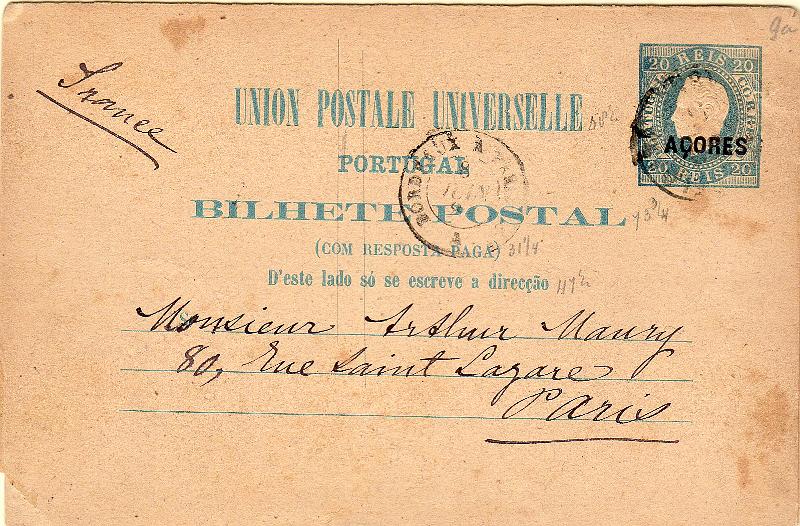 9a
20 REIS 20
AÇORES
20 REIS 20
France
UNION POSTALE UNIVERSELLE
PORTUGAL
BORDEAUX A
BILHETE POSTAL
(COM RESPOSTA PAGA)
31 1/4
D'este lado só se escreve a direcção
Monsieur Arthur Maury
80, Rue Saint Lazare
Paris